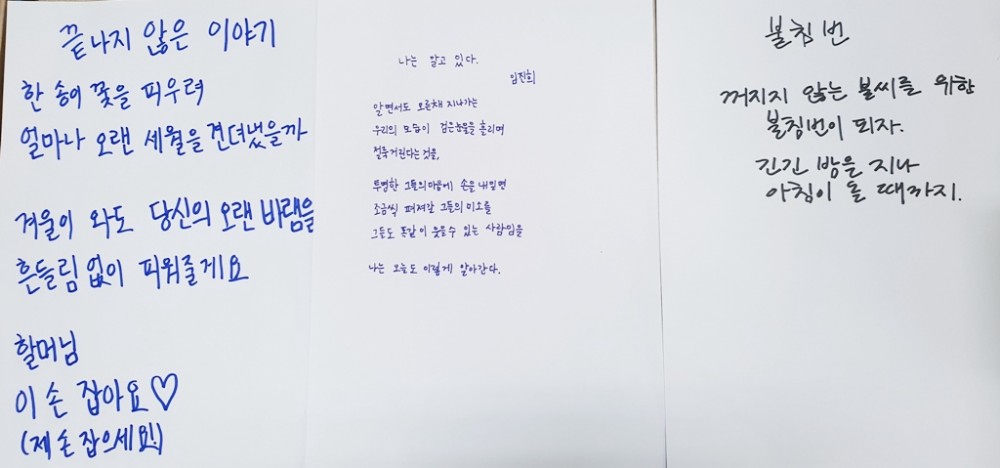 끝나지 않은 이야기
한 송이 꽃을 피우려
얼마나 오랜 세월을 견뎌냈을까
겨울이 와도 당신의 오랜 바램을
흔들림 없이 피워줄게요
할머님
이 손 잡아요♡
(제 손 잡으세요!)
나는 알고 있다.
임진희
알면서도 모른채 지나가는
우리의 모습이 검은눈물을 흘리며
절뚝거린다는것을,
투명한 그들의마음에 손을 내밀면
조금씩 퍼져갈 그들의 미소를
그들도 똑같이 웃을수 있는 사람임을
나는 오늘도 이렇게 알아간다.
불침번
꺼지지 않는 불씨를 위한
불침번이 되자.
긴긴 밤을 지나
아침이 올 때까지.